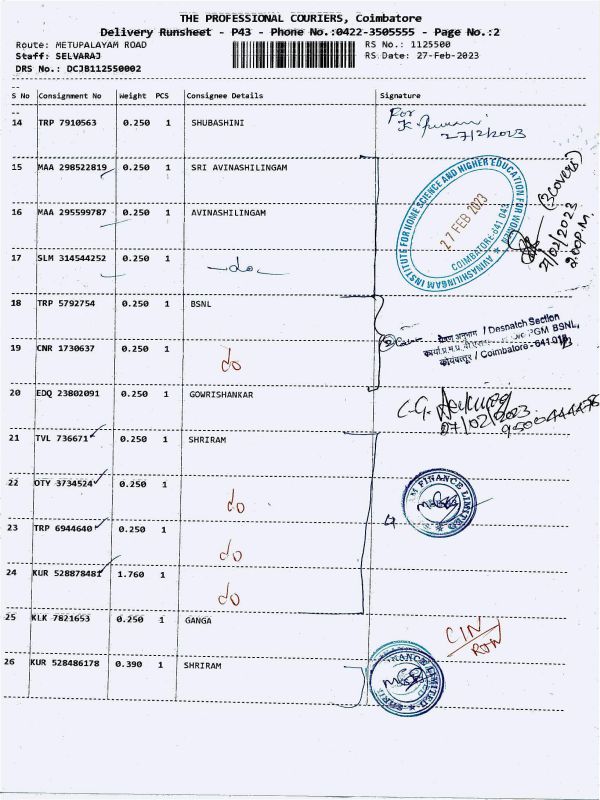 THE PROFESSIONAL COURIERS, Coimbatore
Delivery Runsheet - P43 - Phone No.:0422-3505555 - Page No.:2
Route: METUPALAYAM ROAD RS No.: 1125500
Staff: SELVARAJ RS Date: 27-Feb-2023
DRS No.: DCJB112550002
S No Consignment No Weight PCS Consignee Details Signature
14 TRP 7910563 0.250 1 SHUBASHINI
For
27/2/2023
15 MAA 298522819 0.250 1 SRI AVINASHILINGAM
16 MAA 295599787 0.250 1 AVINASHILINGAM
17 SLM 314544252 0.250 1 do
AVINASHILINGAM INSTITUTE FOR HOME SCIENCE AND HIGHER EDUCATION FOR WOMEN
27 FEB 2023
COIMBATORE-641 043
(3 Covers)
2.00 P.M.
18 TRP 5792754 0.250 1 BSNL
19 CNR 1730637 0.250 1 do
प्रेषण अनुभाग / Despatch Section
PGM BSNL,
कोयंबत्तूर / Coimbatore - 641 018
20 EDQ 23802091 0.250 1 GOWRISHANKAR
27/02/2023
21 TVL 736671 0.250 1 SHRIRAM
22 OTY 3734524 0.250 1 do
23 TRP 6944640 0.250 1 do
24 KUR 528878481 1.760 1 do
4
FINANCE LIMITED
25 KLK 7821653 0.250 1 GANGA
CIN/RTN
26 KUR 528486178 0.390 1 SHRIRAM
FINANCE LIMITED